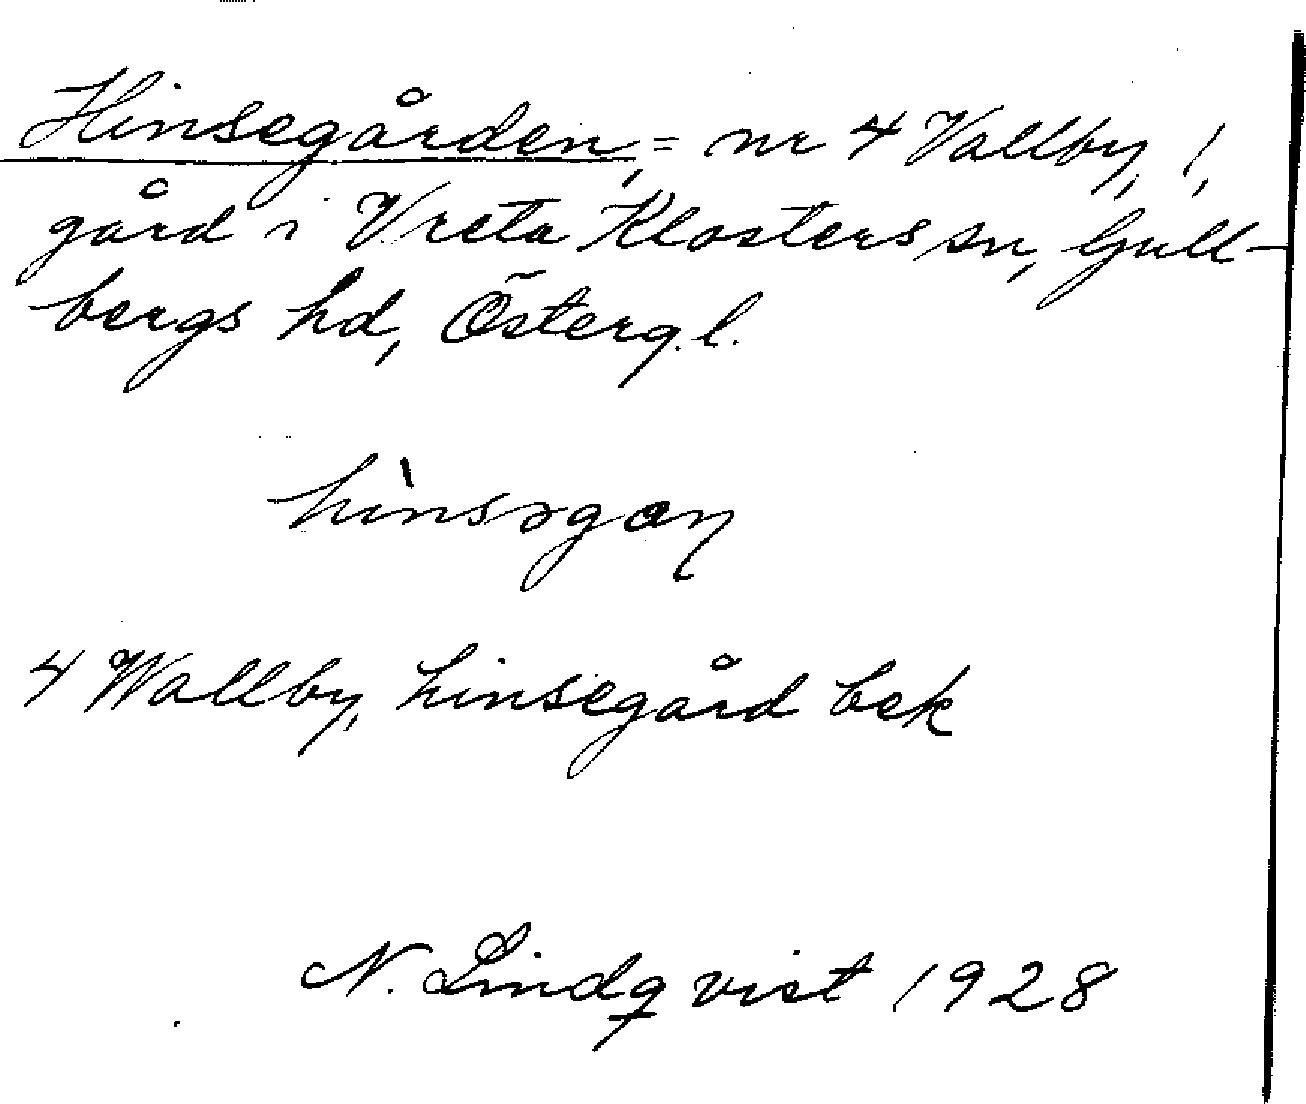 Hinsegården, = nr 4 Vallby, 1,
gård i Vreta Klosters sn, Gull-
bergs hd, Österg.l.
hìnsəgaɳ
4 Wallby, hinsegård bek
N. Lindqvist 1928